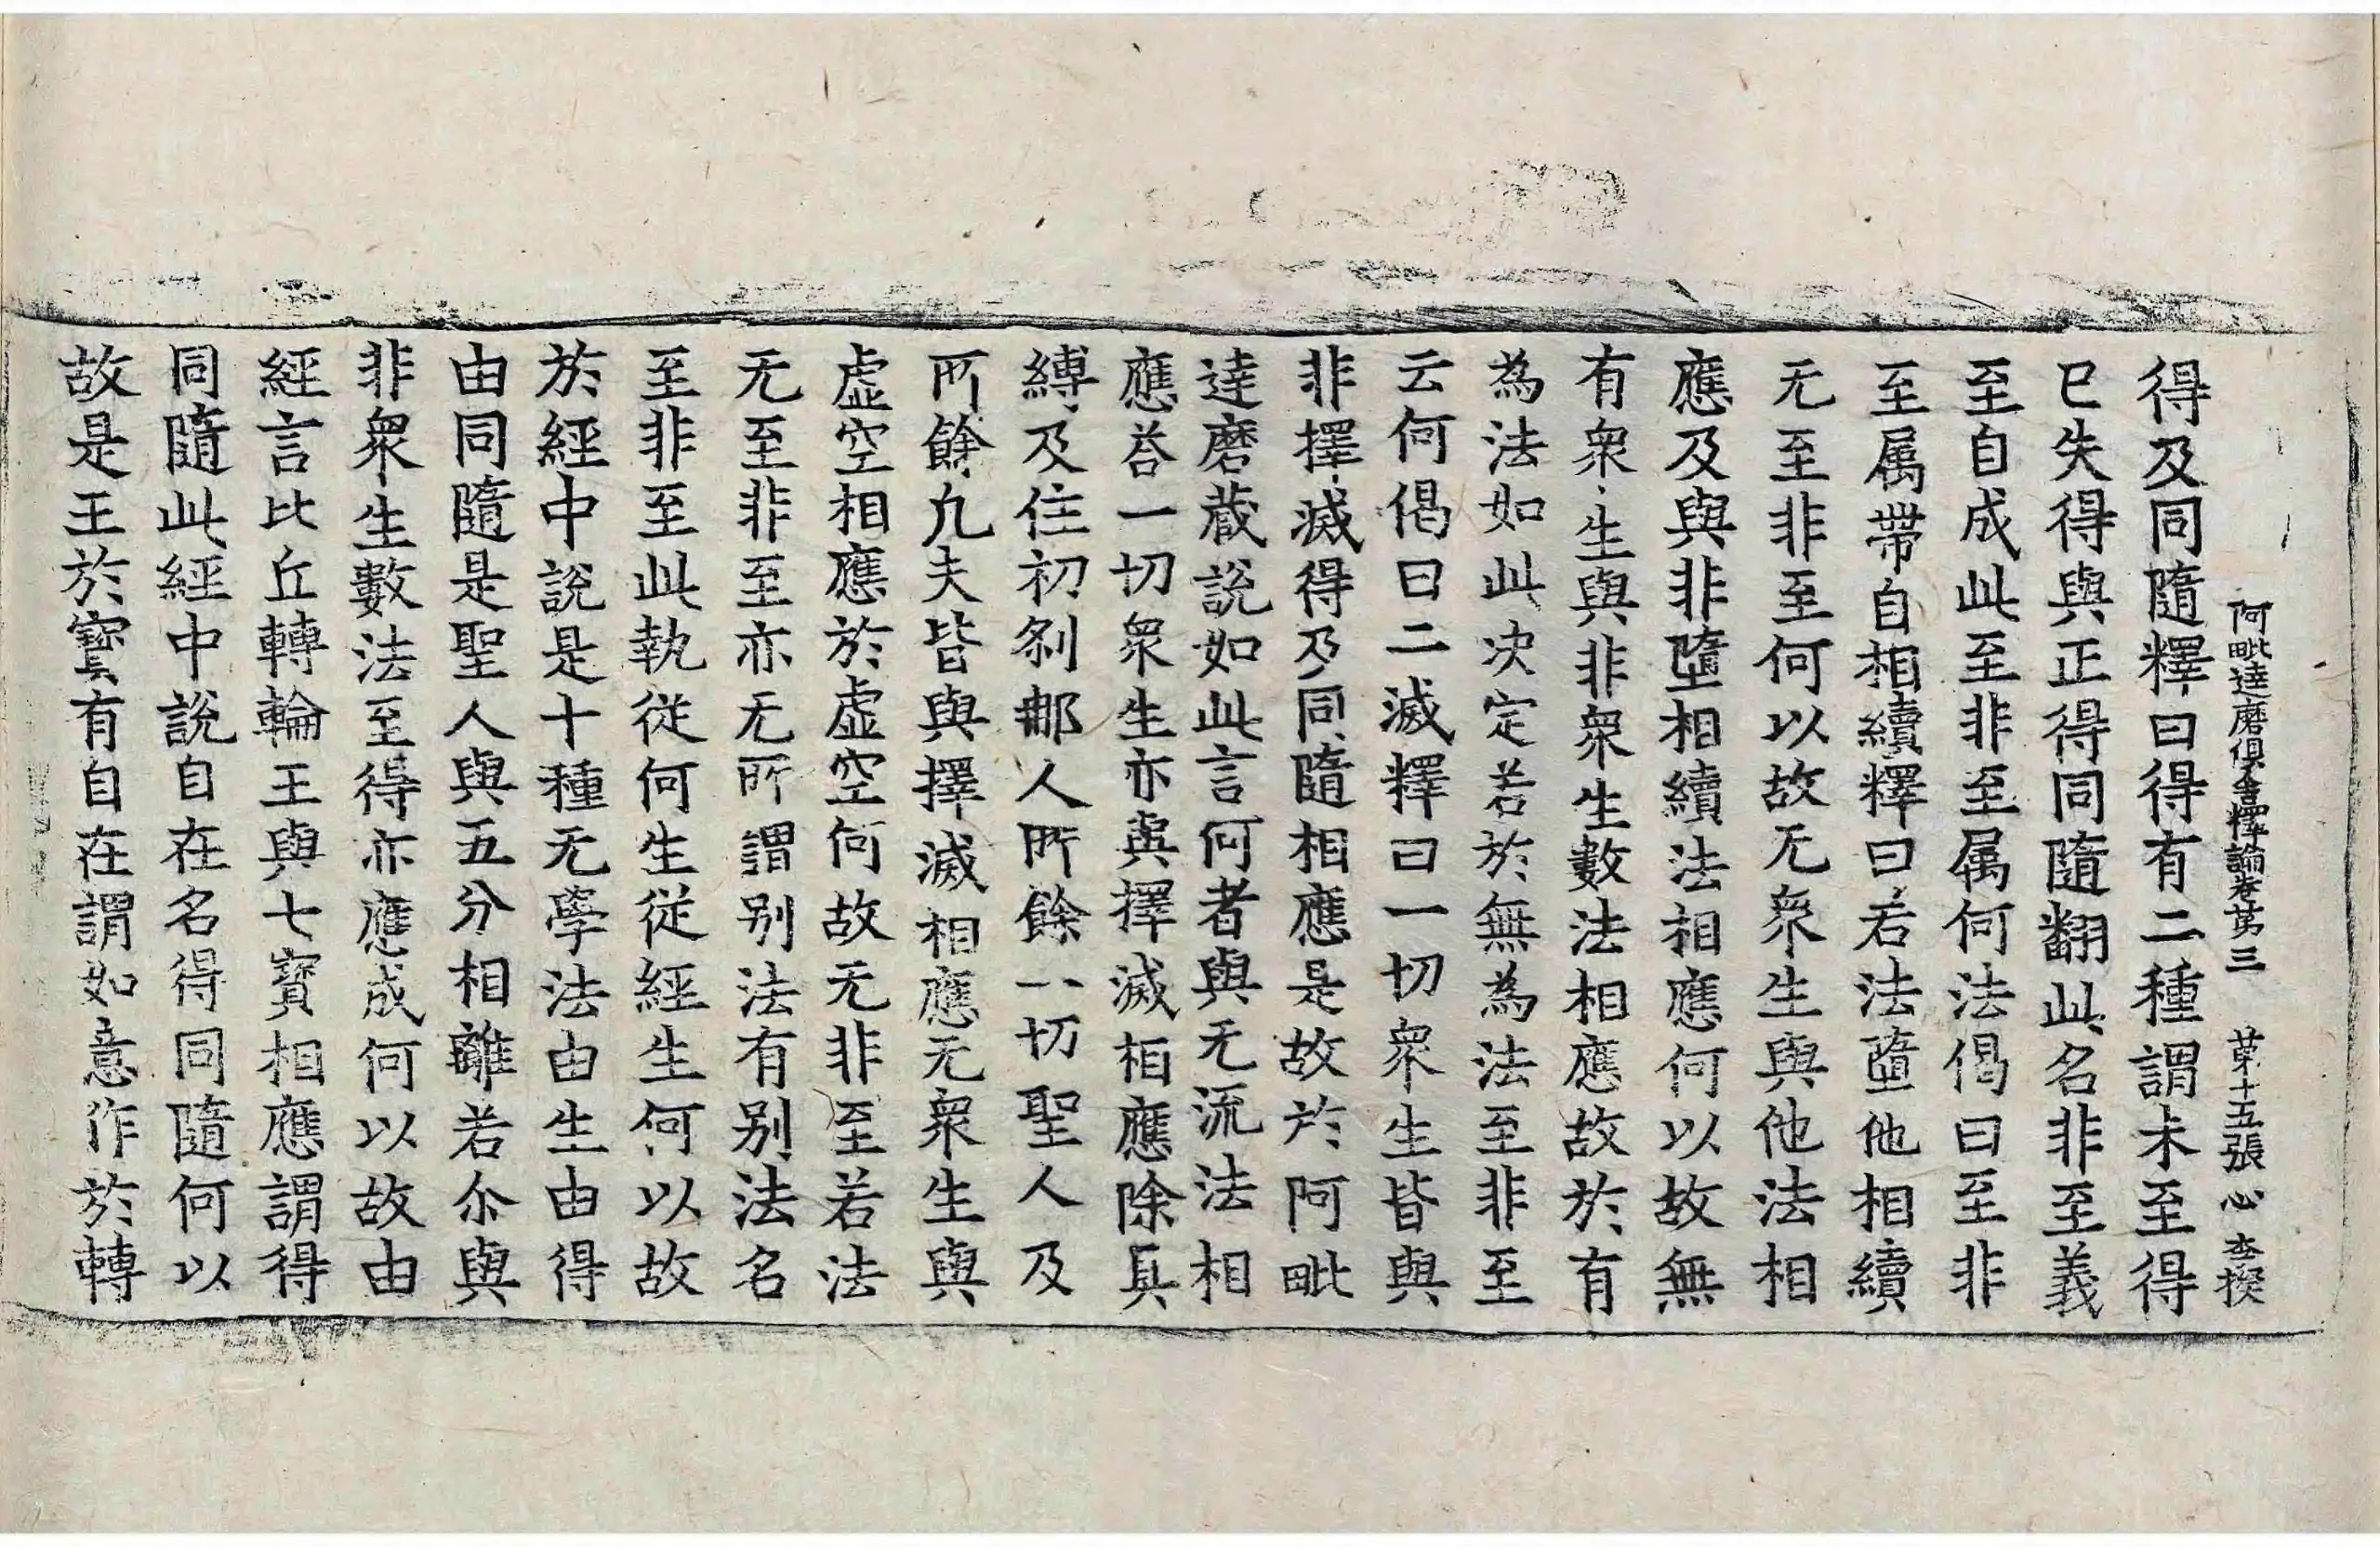 阿毗達磨俱舍釋論卷第三 第十五張 心 李揆
得及同隨釋曰得有二種謂未至得
已失得與正得同隨翻此名非至義
至自成此至非至属何法偈曰至非
至属帶自相續釋曰若法墮他相續
无至非至何以故无衆生與他法相
應及與非墮相續法相應何以故無
有衆生與非衆生數法相應故於有
為法如此决定若於無為法至非至
云何偈曰二滅釋曰一切衆生皆與
非擇滅得及同隨相應是故於阿毗
達磨藏說如此言何者與无流法相
應荅一切衆生亦與擇滅相應除具
縛及住初剎那人所餘一切聖人及
所餘凡夫皆與擇滅相應无衆生與
虛空相應於虛空何故无非至若法
无至非至亦无所謂别法有别法名
至非至此執従何生従經生何以故
於經中說是十種无學法由生由得
由同隨是聖人與五分相離若尒與
非衆生數法至得亦應成何以故由
經言比丘轉輪王與七寳相應謂得
同隨此經中說自在名得同隨何以
故是王於寳有自在謂如意作於轉